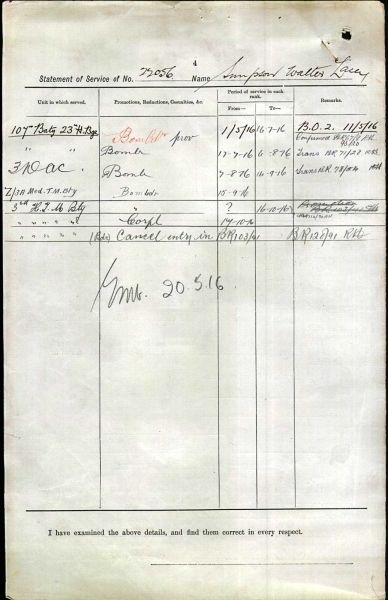 4
Statement of Service of No. 22056 Name Simpson Walter Lacey
Unit in which served. Promotions, Reductions, Casualties, &c. Period of service in each rank. Remarks.
From— To—
107th Baty 23rd H. Bge Bombdr prov 1/5/16 16-7-16 B.O. 2. 11/5/16
" " Bomb 17-7-16 6-8-16 Trans BR 71/28
3 DAC Bomb 7-8-16 14-9-16 Trans BR 78/
Z/3A Med. T.M. Bty Bombdr 15-9-16
3rd H.T.M Bty " ? 16-10-16
" " " " Corpl 17-10-16
" " " " (Bdr) Cancel entry in BR103/91 BR120/91
Emb. 20.5.16
I have examined the above details, and find them correct in every respect.